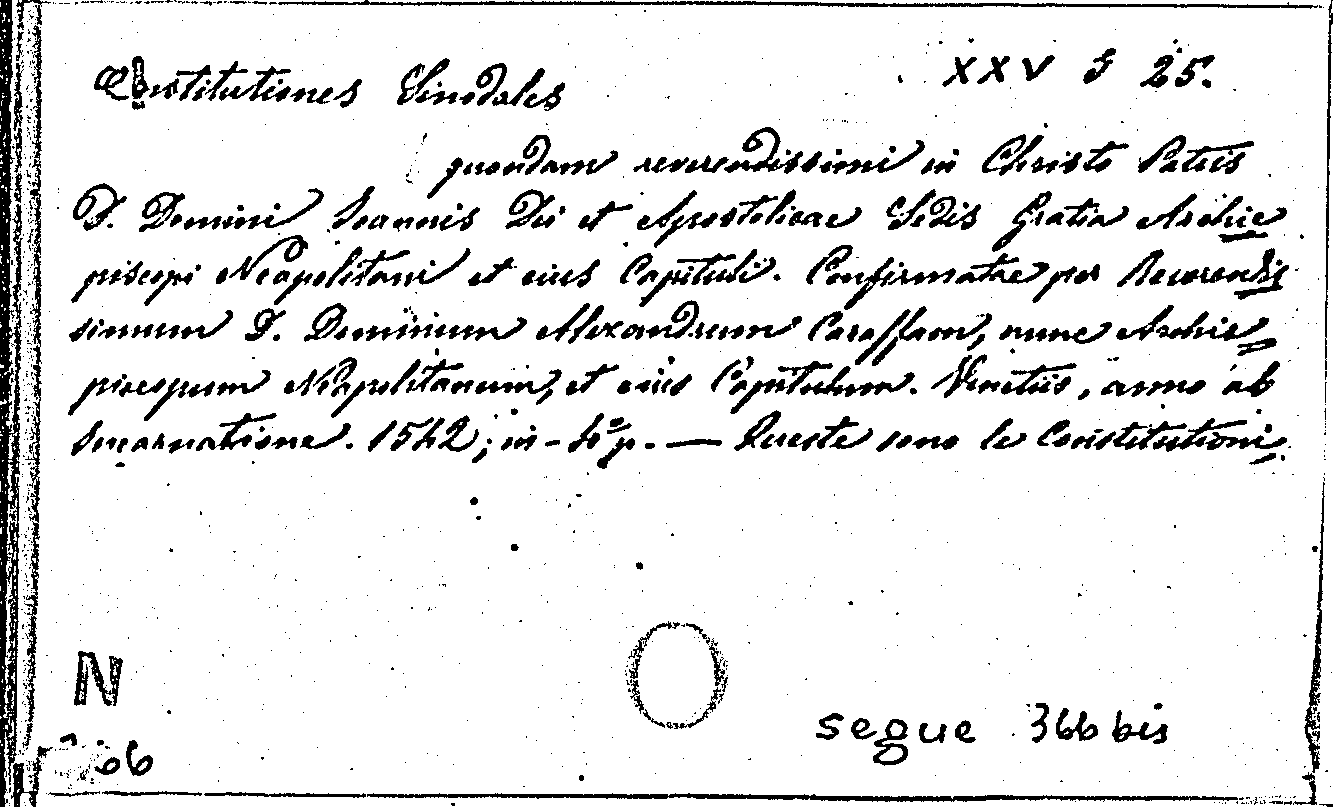 Constitutiones Sinodales XXV S 25.
quondam reverendissimi in Christo Patris
D. Domini Joannis Dei et Apostolicae Sedis Gratia Archie
piscopi Neapolitani et eius Capituli. Confirmatae per Reverendis
simum D. Dominum Alexandrum Caraffam, nunc Archie
piscopum Neapolitanum, et eius Capitulum. Venetiis, anno ab
Incarnatione. 1542; in-4º p. — Queste sono le Constitutioni
N
segue 366 bis
66